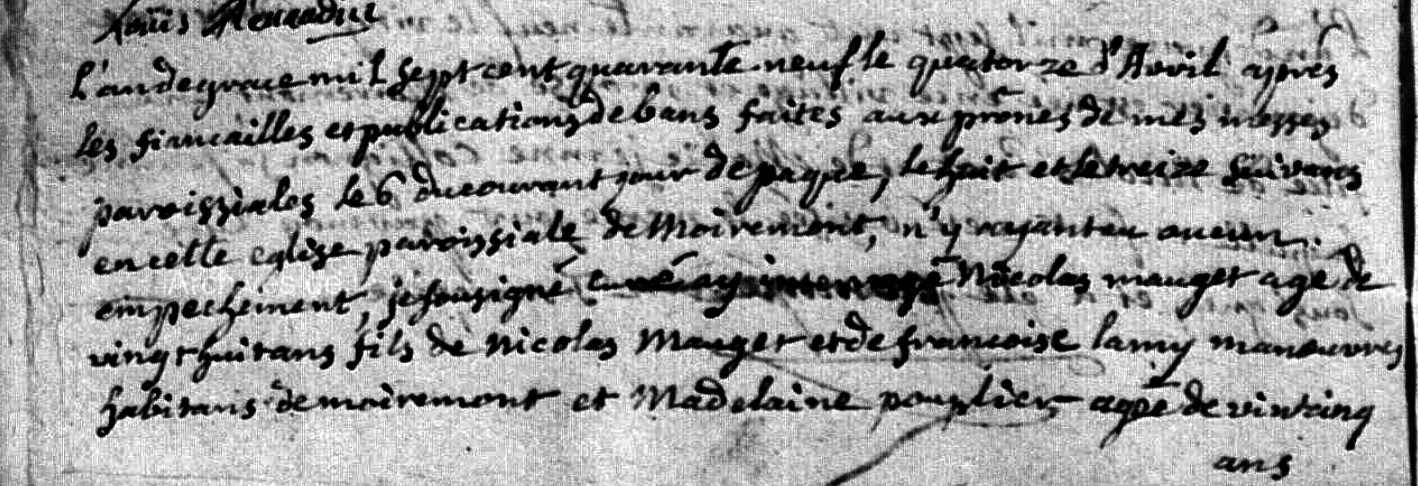 Louis Renaudin
l'an de grace mil sept cent quarante neuf le quatorze d'Avril après
les fiancailles et publications de bans faites aux prônes de mes messes
paroissiales le 6 du courant jour de paque, le huit et le treize suivans
en cette eglise paroissiale de Moiremont, n'y ayant eu aucun
empechement, je sousigné curé ay interrogé Nicolas mauget agé de
vingt huit ans fils de Nicolas Mauget et de francoise lamy manouvres
habitans de moiremont et Madelaine pouplier agée de vintcinq
ans